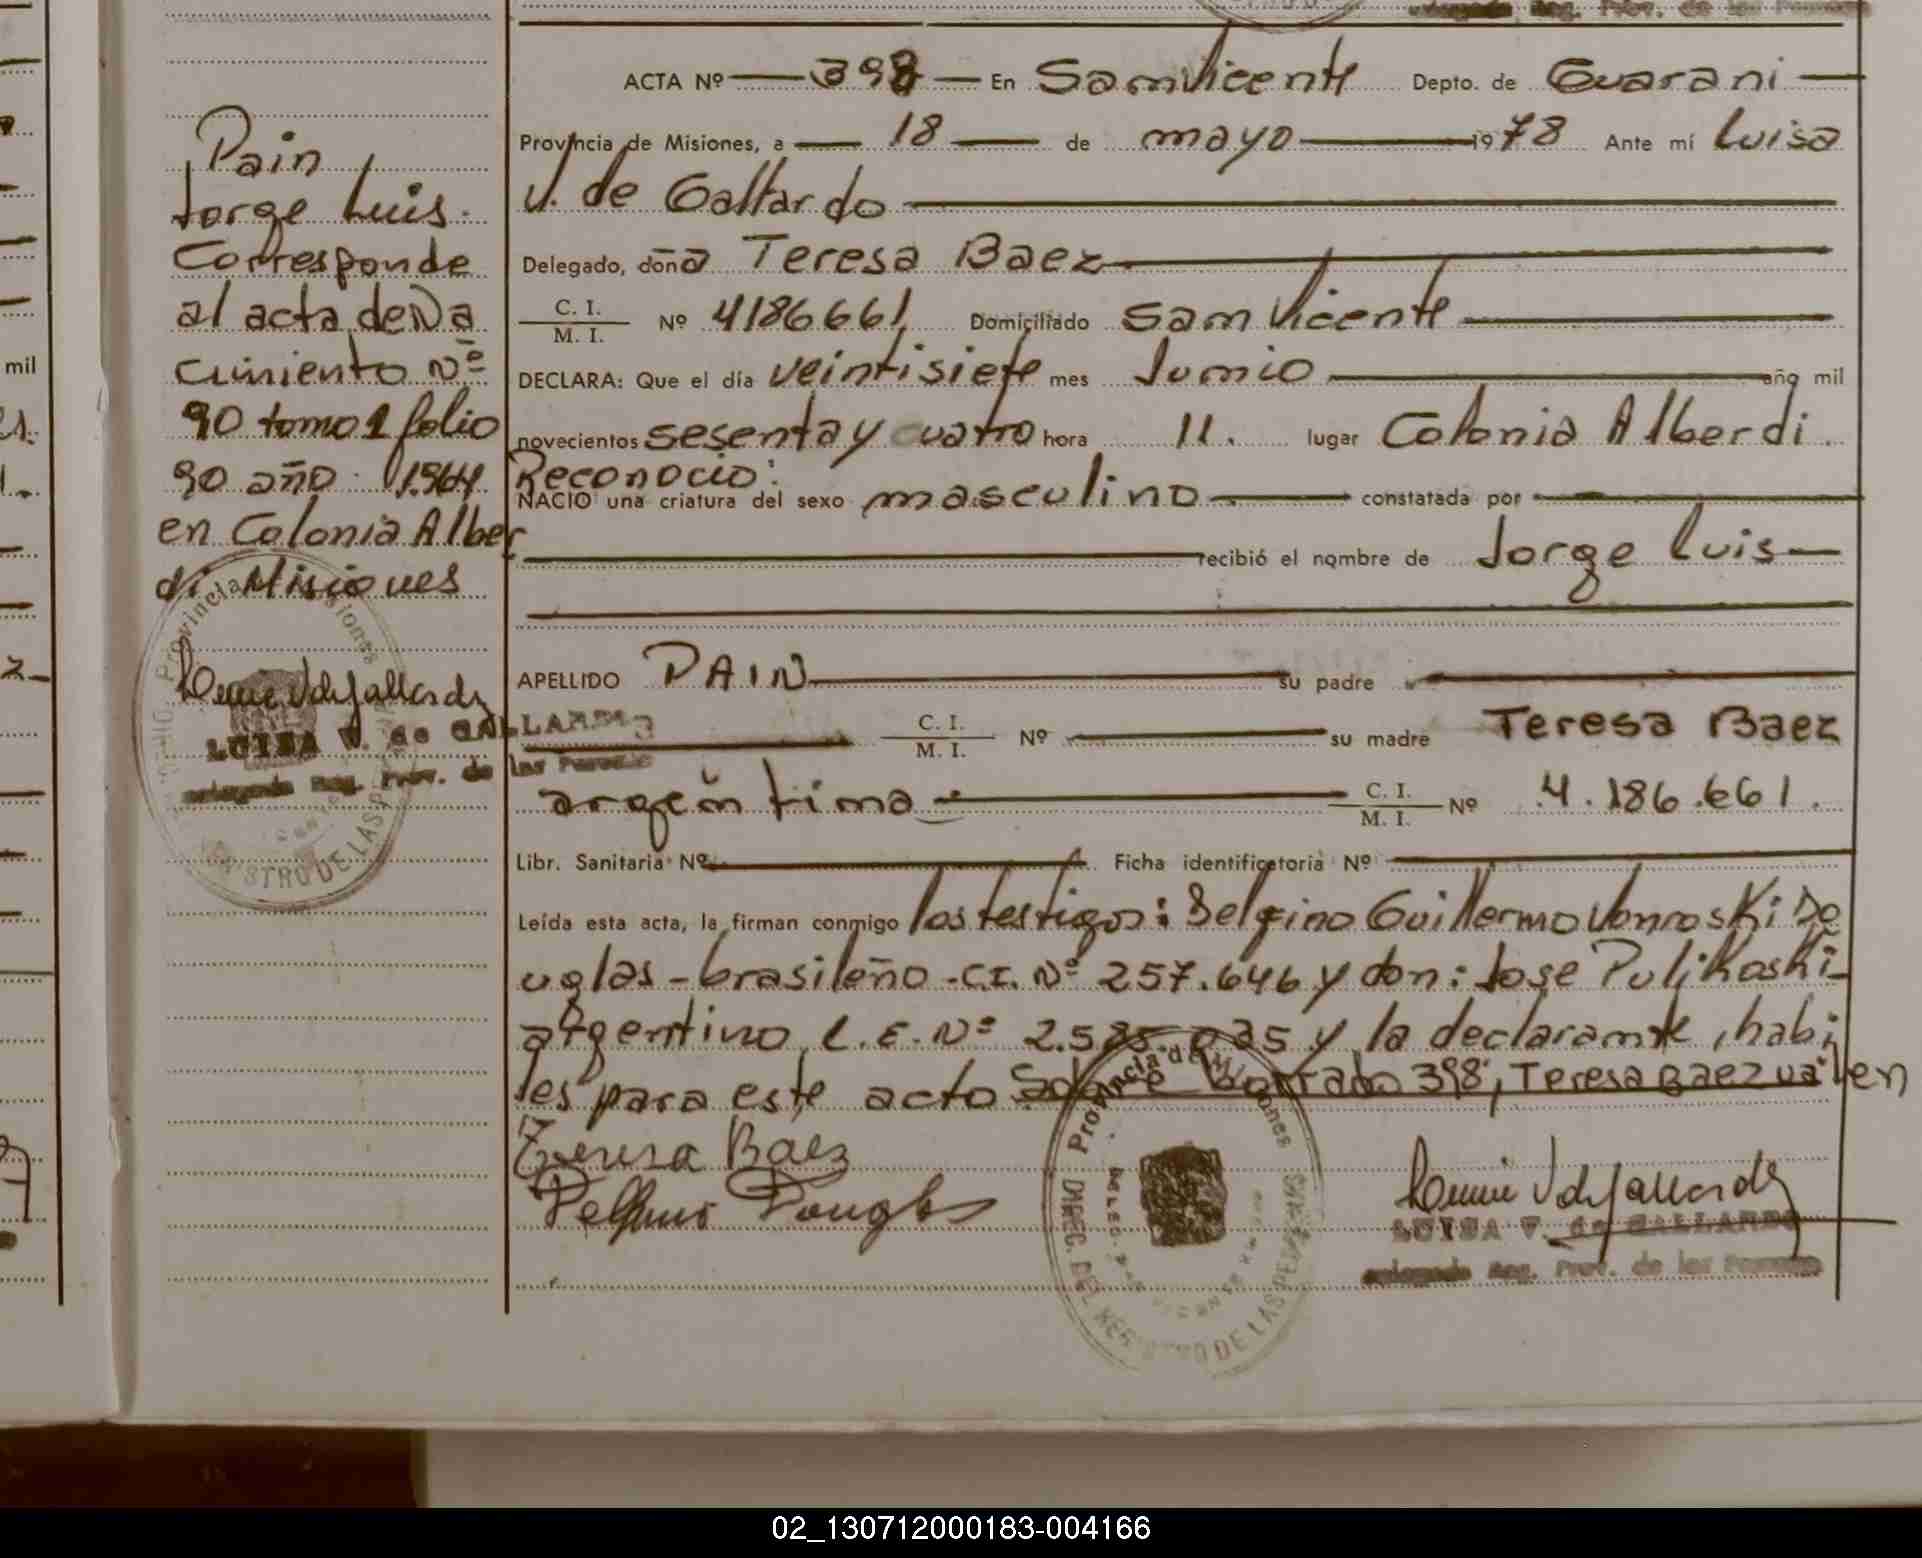 Pain
Jorge Luis.
Corresponde
al acta de Na
cimiento Nº
90 tomo 1 folio
90 año 1964
en Colonia Alber
di Misiones
LUISA V. de GALLARDO
Reg. Prov. de las Personas
mil
Reg. Prov. de las Personas
ACTA Nº 398 En San Vicente Depto. de Guarani
Provincia de Misiones, a 18 de mayo 1978 Ante mí Luisa
V. de Gallardo
Delegado, doña Teresa Baez
C. I. / M. I. Nº 4186661 Domiciliado San Vicente
DECLARA: Que el día veintisiete mes Junio año mil
novecientos sesenta y cuatro hora 11. lugar Colonia Alberdi
Reconocio:
NACIO una criatura del sexo masculino constatada por
recibió el nombre de Jorge Luis
APELLIDO PAIN su padre
C. I. / M. I. Nº su madre Teresa Baez
argentina C. I. / M. I. Nº 4.186.661.
Libr. Sanitaria Nº Ficha identificatoria Nº
Leída esta acta, la firman conmigo los testigos: Delfino Guillermo Do
uglas - brasileño - C.I. Nº 257.646 y don: Jose Pulikoski
argentino L.E. Nº 2.585.035 y la declarante, habi
les para este acto Sobre borrado 398, Teresa Baez valen
Teresa Baez
Delfino Douglas
Provincia de Misiones
DIREC. DEL REGISTRO DE LAS PERSONAS
LUISA V. de GALLARDO
Reg. Prov. de las Personas
02_130712000183-004166